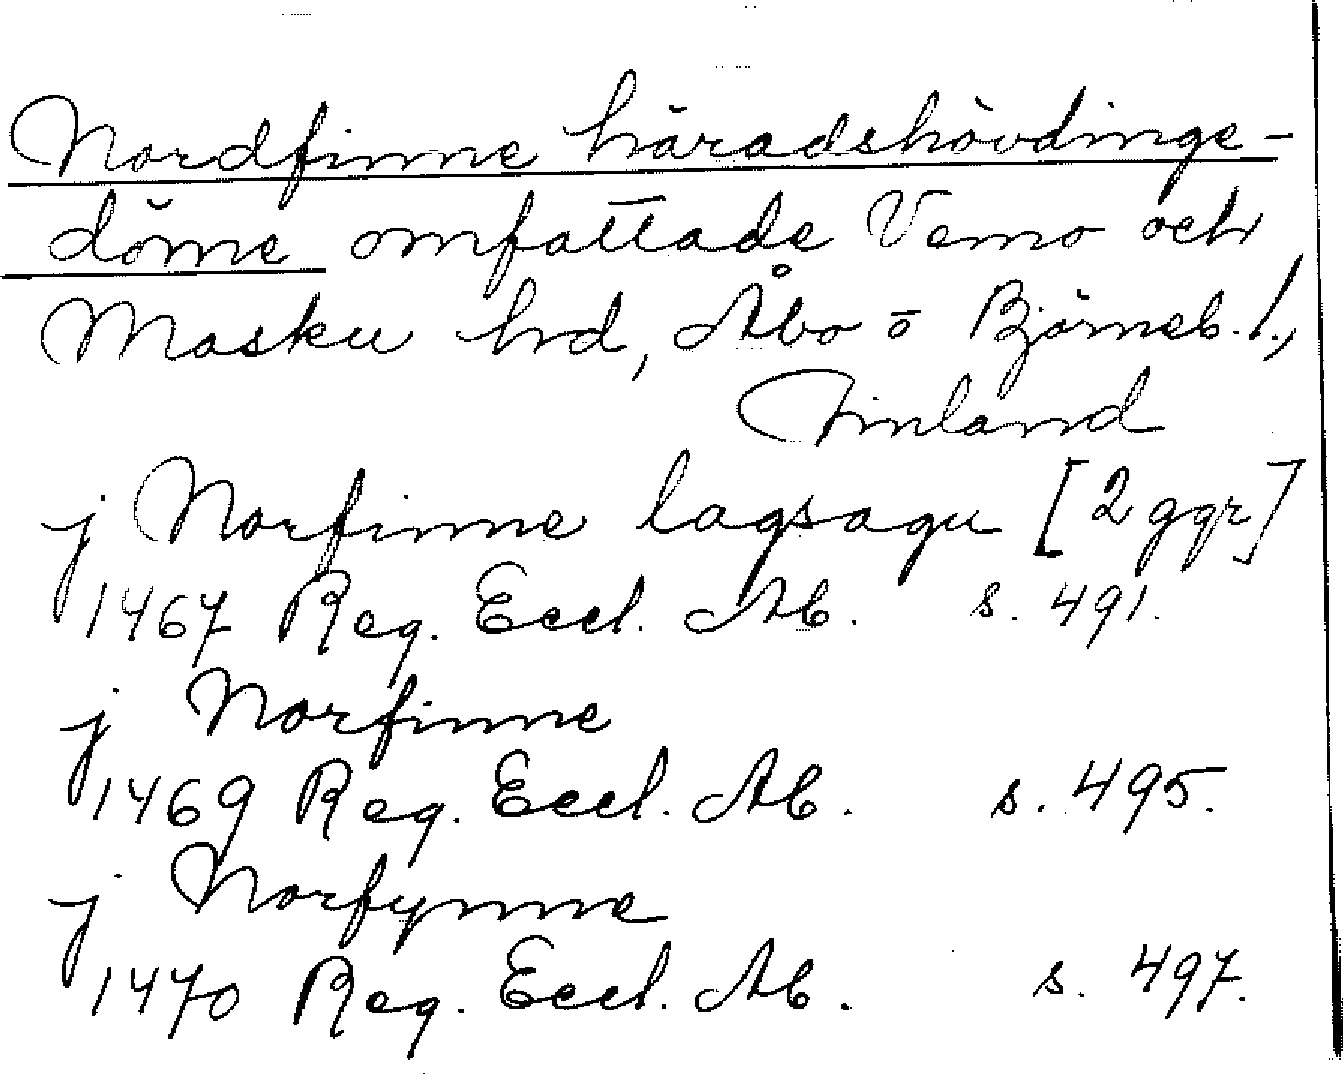 Nordfinne häradshövdinge-
döme omfattade Vemo och
Masku hrd, Åbo o Björneb. l.,
Finland
j Norfinne lagsagu [2 ggr]
1467 Reg. Eccl. Ab. s. 491.
j Norfinne
1469 Reg. Eccl. Ab. s. 495.
j Norfynne
1470 Reg. Eccl. Ab. s. 497.